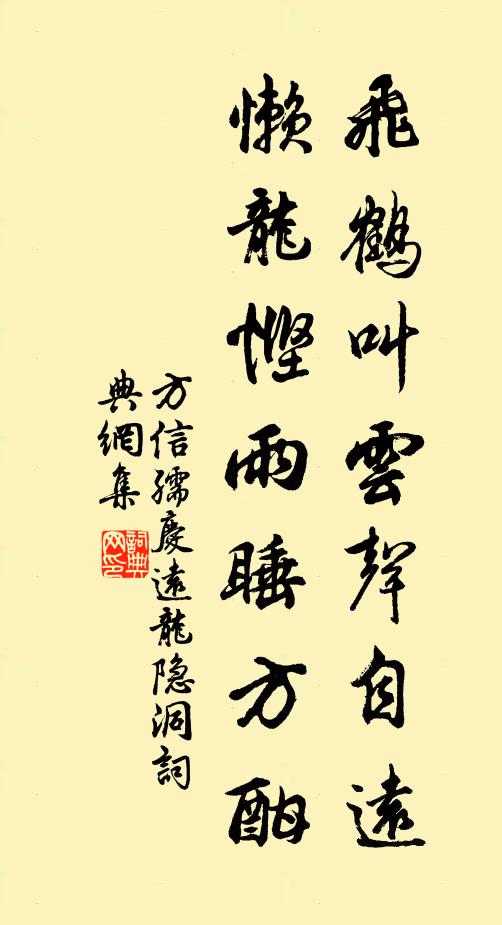 飛鶴叫雲聲自遠
懶龍慳雨睡方酣
方信孺慶遠龍隐洞詞
典網集
詞典
网印